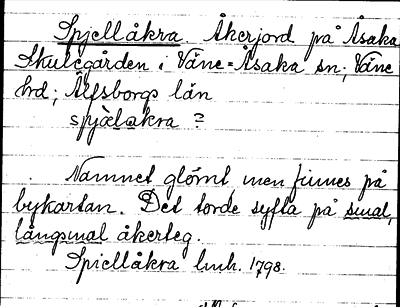 Spjellåkra. Åkerjord på Åsaka
Skulegården i Väne-Åsaka sn; Väne
hd; Älfsborgs län
spjälakra ?
Namnet glömt, men finnes på
bykartan. Det torde syfta på smal,
långsmal åkerteg.
Spiellåkra lmh. 1798.